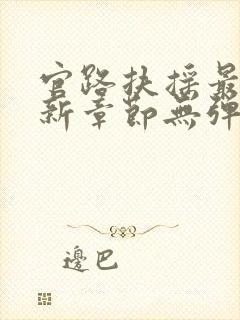 官路扶摇最
新章節無彈
邊巴